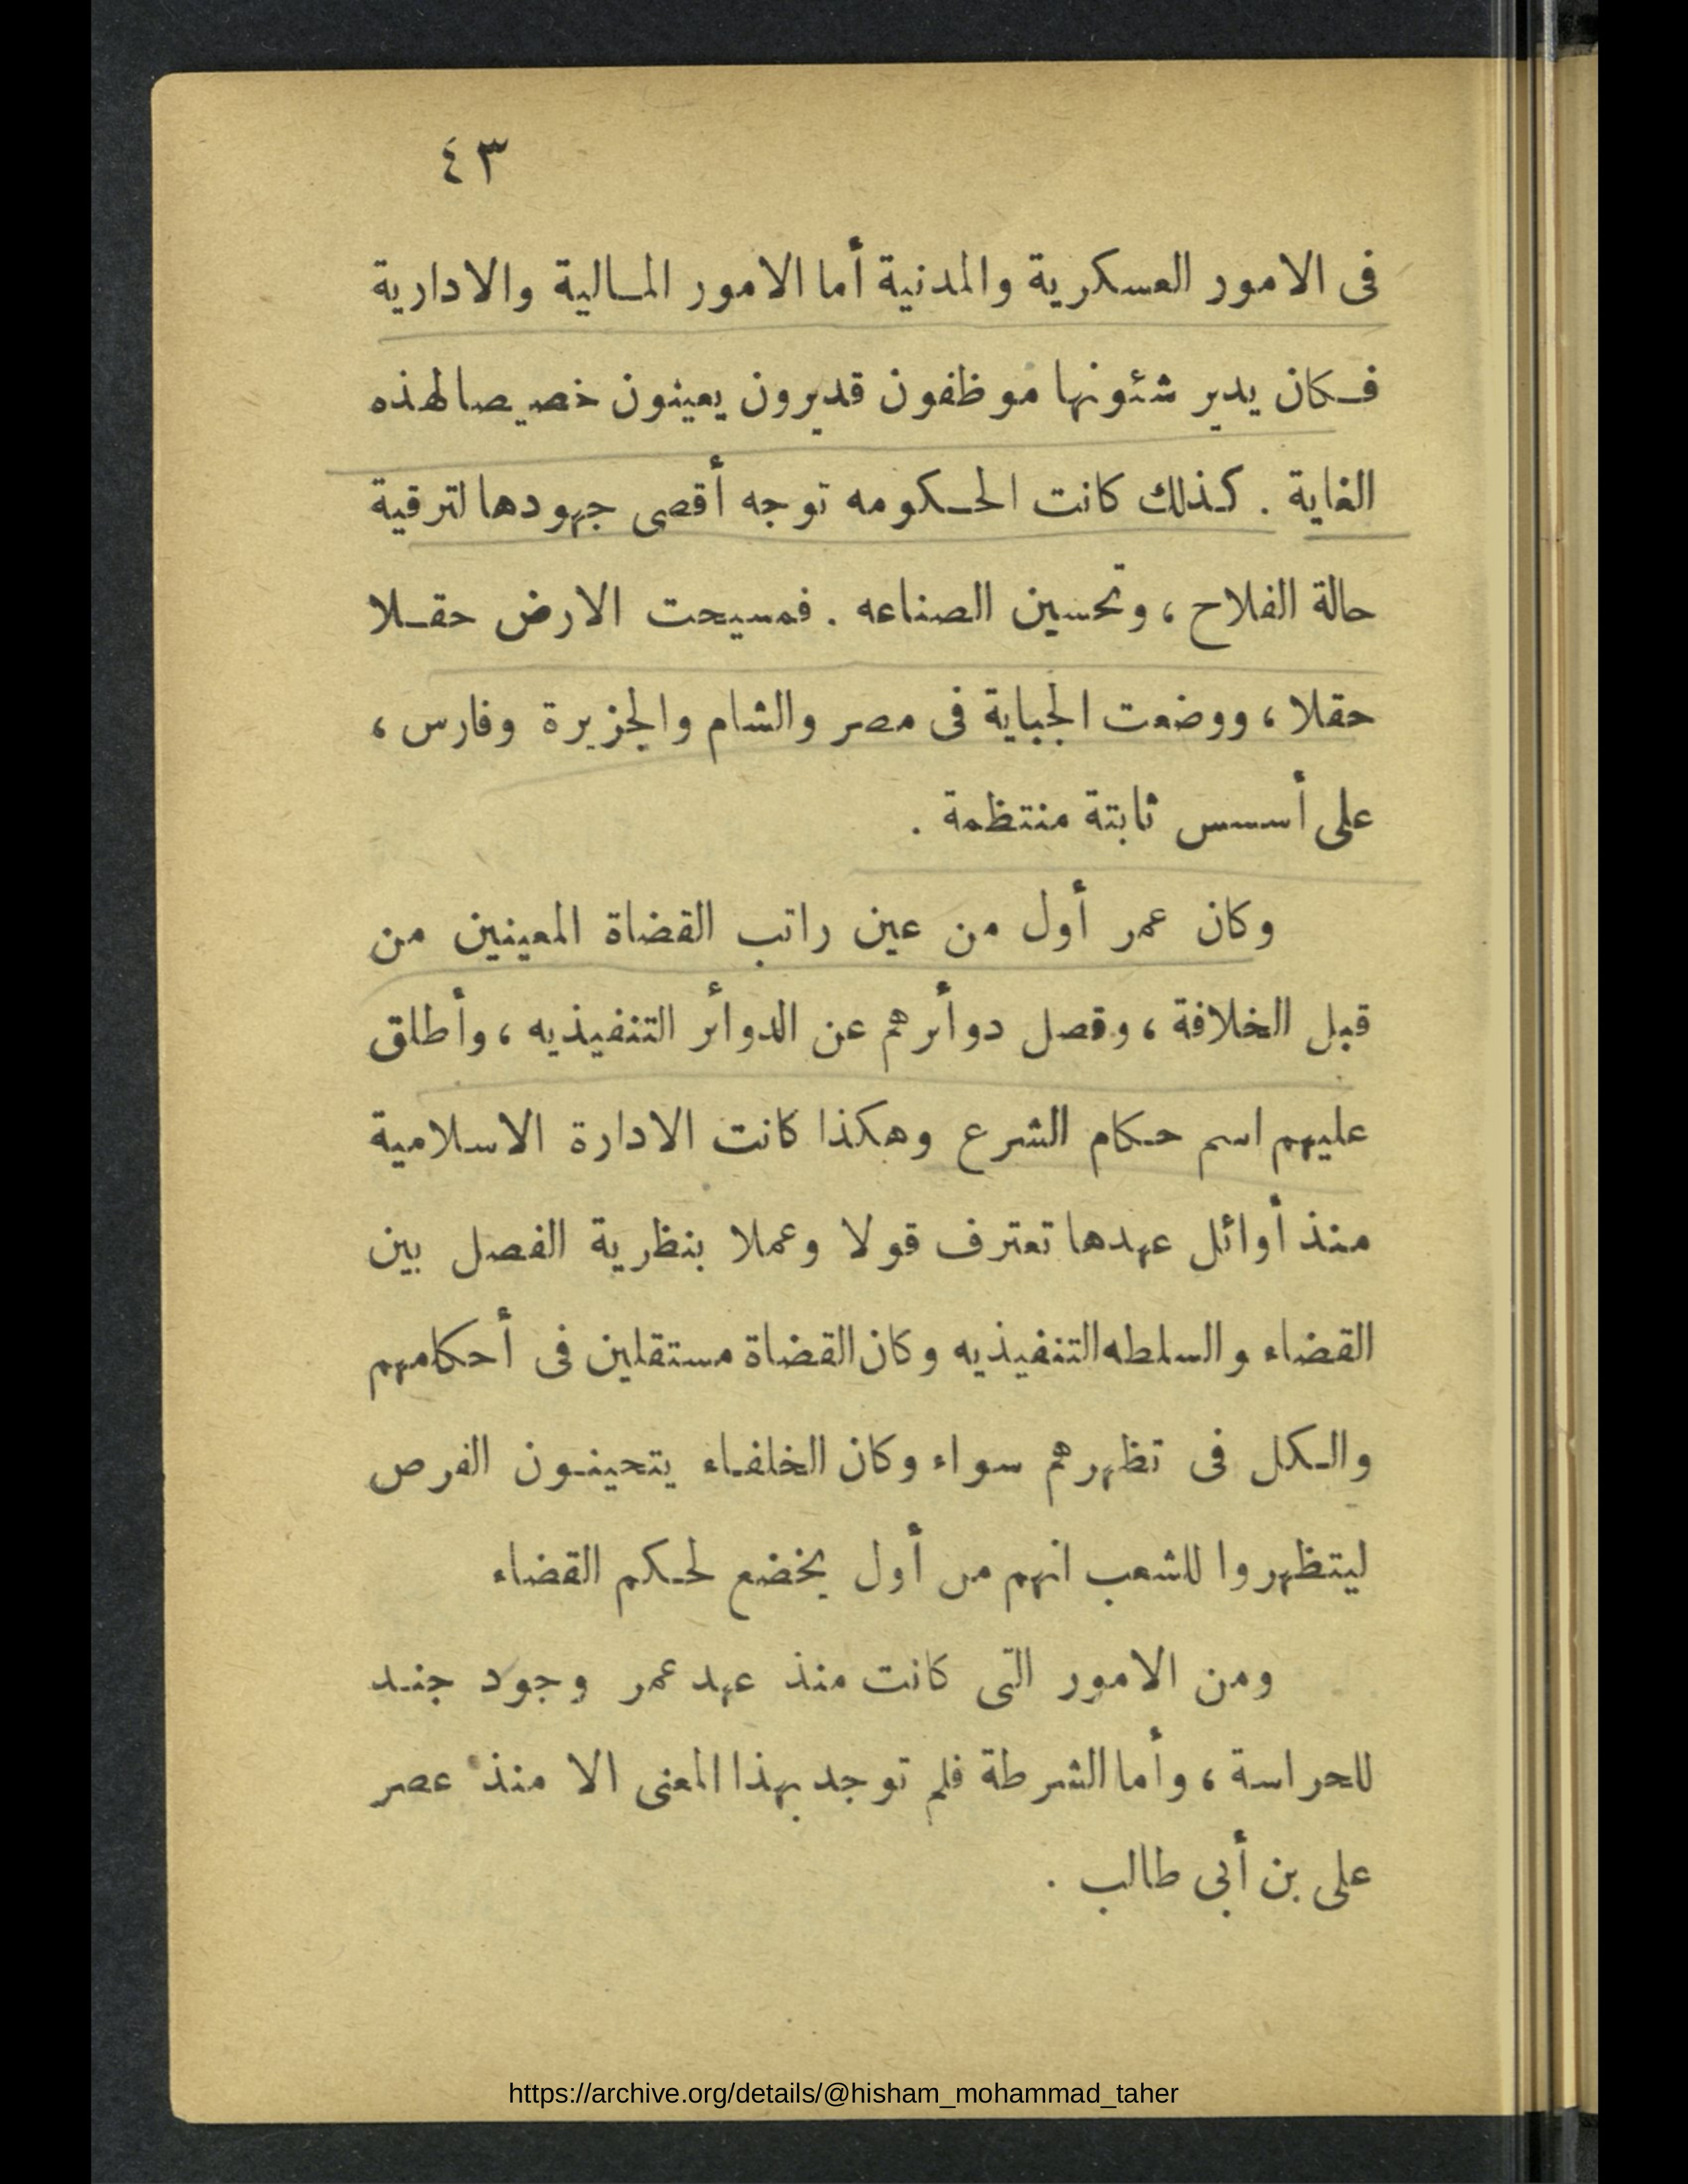 ٤٣
فى الامور العسكرية والمدنية أما الامور المالية والادارية
فكان يدير شئونها موظفون قديرون يعينون خصيصا لهذه
الغاية . كذلك كانت الحكومه توجه أقصى جهودها لترقية
حالة الفلاح ، وتحسين الصناعه . فمسيحت الارض حقلا
حقلا ، ووضعت الجباية فى مصر والشام والجزيرة وفارس ،
على أسس ثابتة منتظمة .
وكان عمر أول من عين راتب القضاة المعينين من
قبل الخلافة ، وفصل دوأرهم عن الدوأر التنفيذيه ، وأطلق
عليهم اسم حكام الشرع وهكذا كانت الادارة الاسلامية
منذ أوائل عهدها تعترف قولا وعملا بنظرية الفصل بين
القضاء والسلطه التنفيذيه وكان القضاة مستقلين فى أحكامهم
والكل فى تظهرهم سواء وكان الخلفاء يتحينون الفرص
ليتظهروا للشعب انهم من أول يخضع لحكم القضاء
ومن الامور التى كانت منذ عهد عمر وجود جند
للحراسة ، وأما الشرطة فلم توجد بهذا المعنى الا منذ عصر
على بن أبى طالب .
https://archive.org/details/@hisham_mohammad_taher